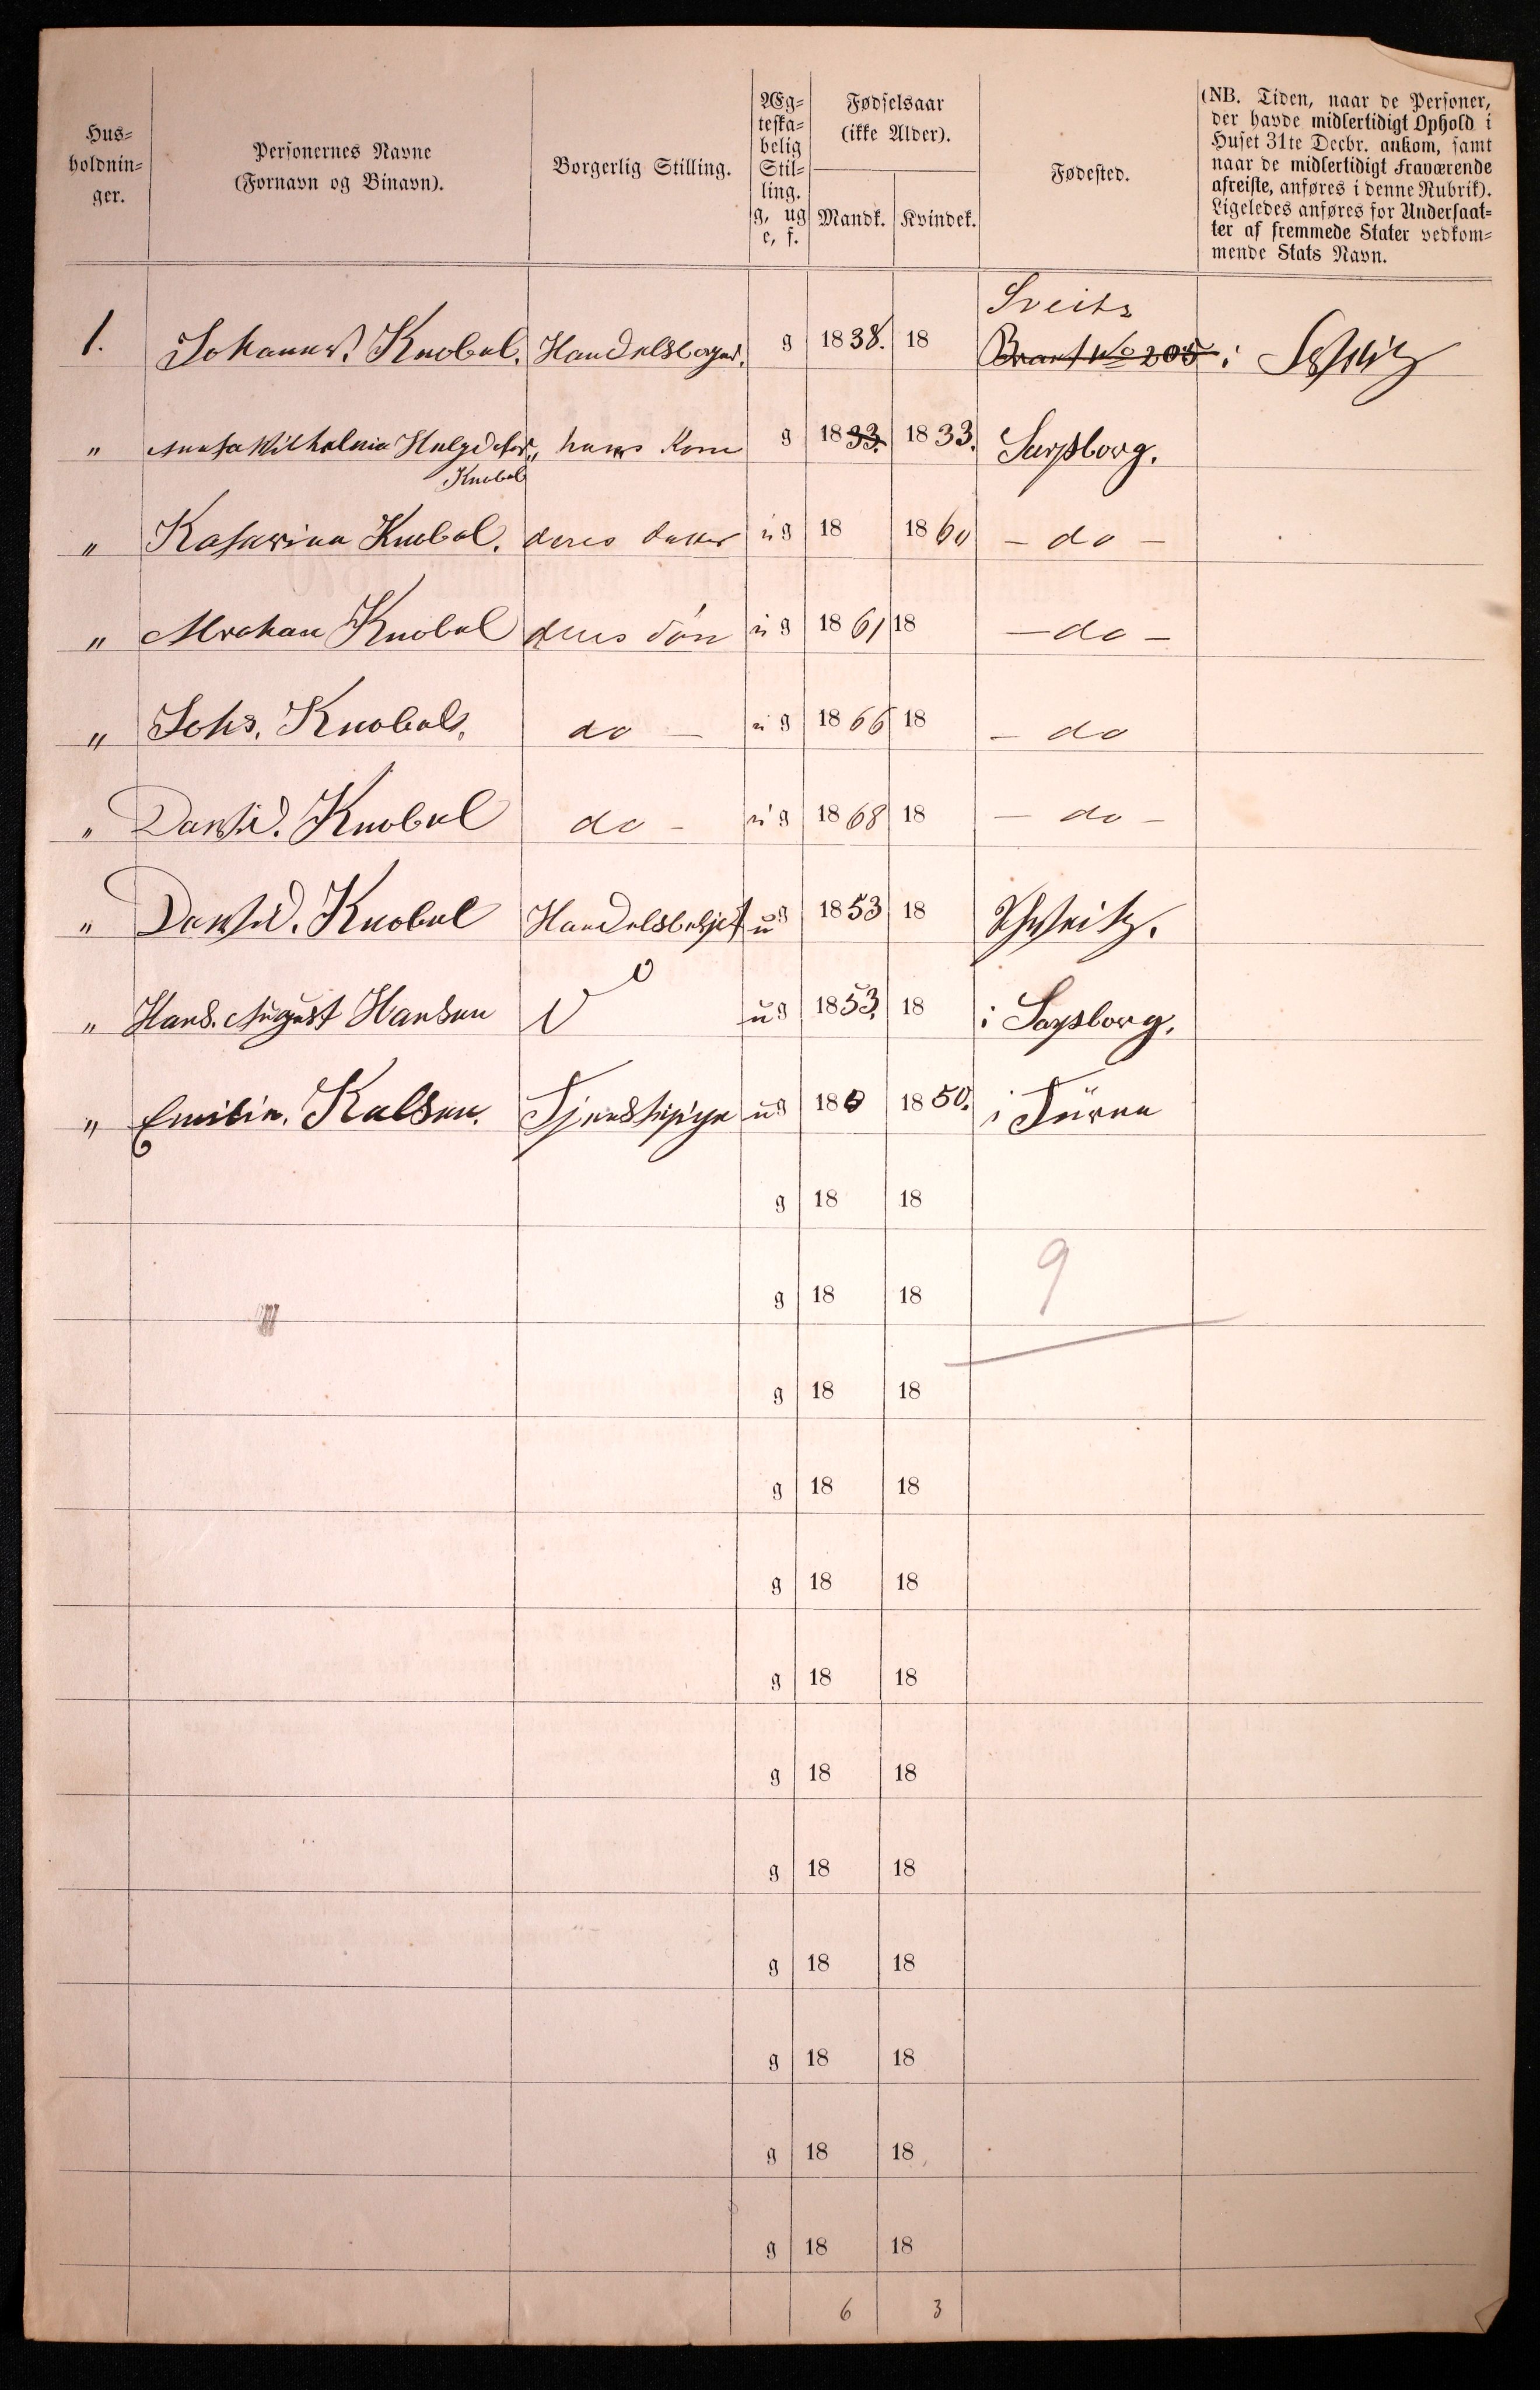 Hus-
holdnin-
ger.
Personernes Navne
(Fornavn og Binavn).
Borgerlig Stilling.
Æg-
teska-
belig
Stil-
ling.
g, ug
e, f.
Fødselsaar
(ikke Alder).
Mandk. Kvindek.
Fødested.
(NB. Tiden, naar de Personer,
der havde midlertidigt Ophold i
Huset 31te Decbr. ankom, samt
naar de midlertidigt Fraværende
afreiste, anføres i denne Rubrik).
Ligeledes anføres for Undersaat-
ter af fremmede Stater vedkom-
mende Stats Navn.
Sveits
1. Johannes. Knobel. g 1838. 18 No 205 i
" hans Kone g 1833. 1833. Sarpsborg.
Knobel
" Knobel. deres datter ug 18 1860 – do –
" Abraham Knobel deres Søn ug 1861 18 – do –
" Johs. Knobel. do – ug 1866 18 – do
" David. Knobel do – ug 1868 18 – do –
" David. Knobel ug 1853 18 Schweitz.
" Hans. August Hansen ug 1853. 18 i Sarpsborg.
" Emilie. Kalsen. Tjenestepige ug 18 1850. i Tune
g 18 18
g 18 18 9
g 18 18
g 18 18
g 18 18
g 18 18
g 18 18
g 18 18
g 18 18
g 18 18
g 18 18
g 18 18
6 3